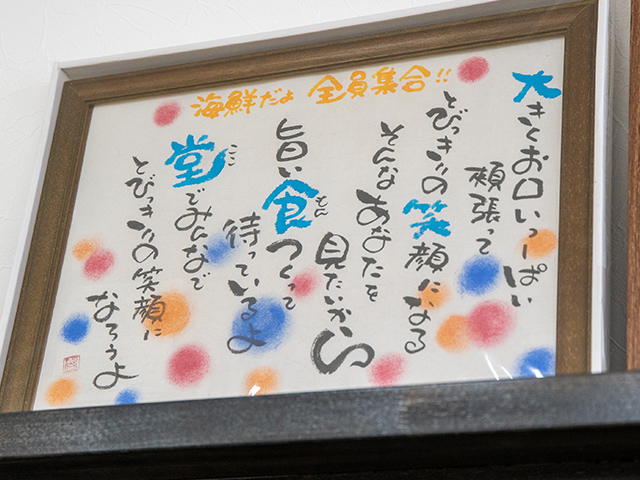 海鮮だよ 全員集合!!
大きくお口いっぱい
頬張って
とびっきりの笑顔になる
そんなあなたを
見たいから
旨い食つくって
もん
待っているよ
堂でみんなで
ここ
とびっきりの笑顔に
なろうよ